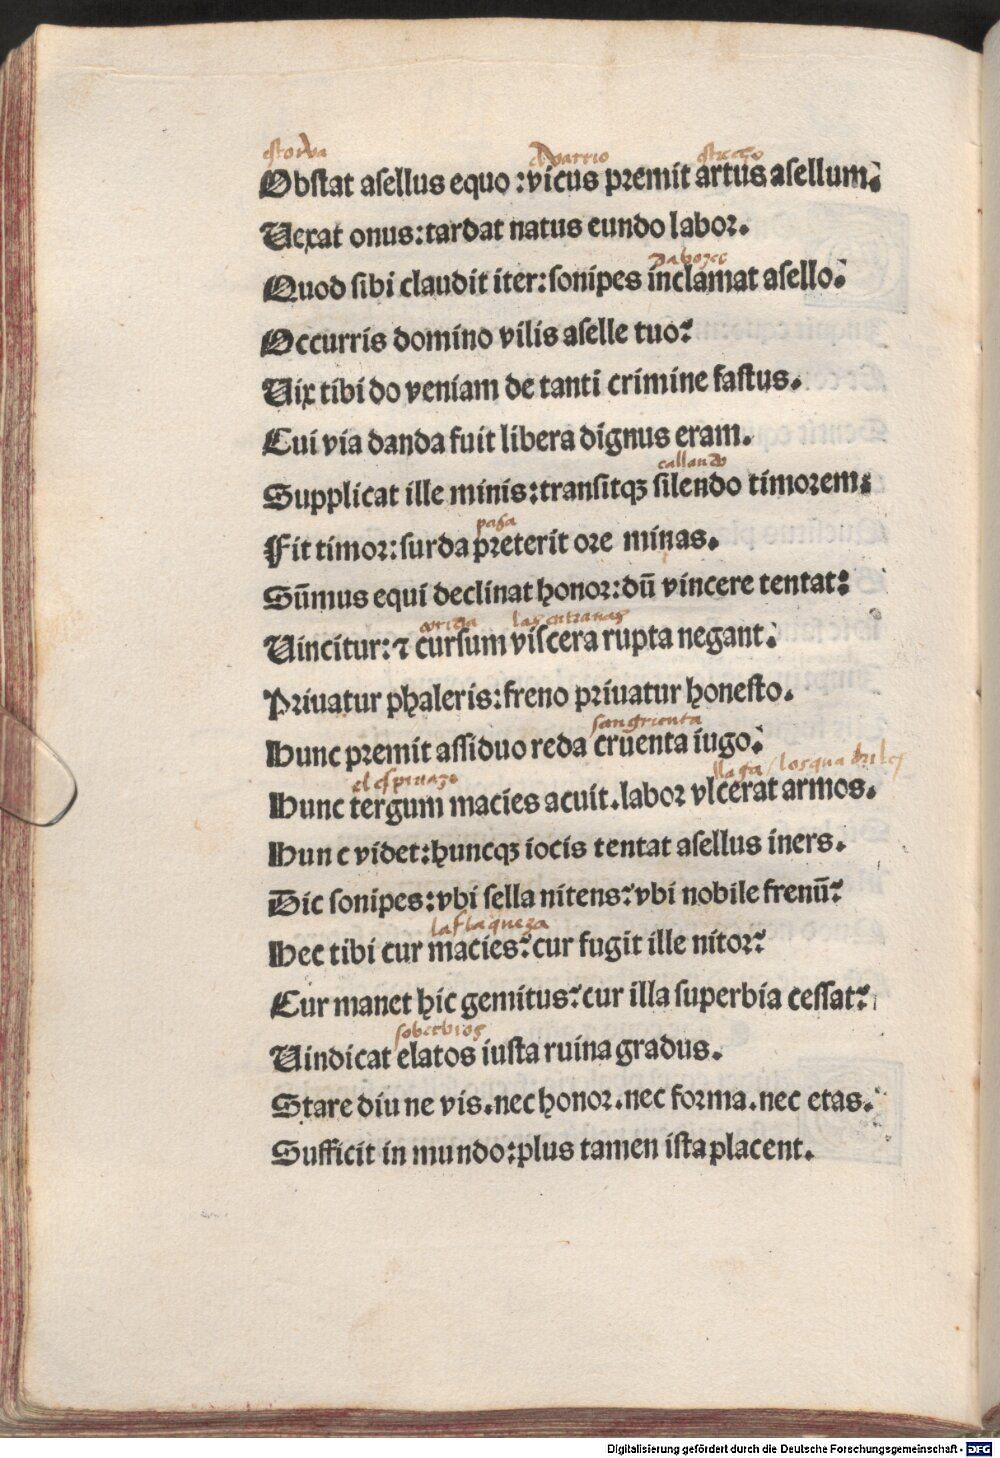 estorva el varrio estrecho
Obstat asellus equo:vicus premit artus asellum.
Uexat onus:tardat natus eundo labor.
da bozes
Quod sibi claudit iter:sonipes inclamat asello.
Occurris domino vilis aselle tuo?
Uix tibi do veniam de tanti crimine fastus.
Cui via danda fuit libera dignus eram.
callando
Supplicat ille minis:transitqꝫ silendo timorem:
pasa
Fit timor:surda preterit ore minas.
Sūmus equi declinat honor:dū vincere tentat:
corrida las entranas
Uincitur:⁊ cursum viscera rupta negant.
Priuatur phaleris:freno priuatur honesto.
sangrienta
Hunc premit assiduo reda cruenta iugo.
el espinazo llaga / los quadriles
Hunc tergum macies acuit.labor vlcerat armos.
Hunc videt:huncqꝫ iocis tentat asellus iners.
Dic sonipes:vbi sella nitens?vbi nobile frenū?
la flaqueza
Hec tibi cur macies?cur fugit ille nitor?
Cur manet hic gemitus?cur illa superbia cessat?
soberbios
Uindicat elatos iusta ruina gradus.
Stare diu ne vis.nec honor.nec forma.nec etas.
Sufficit in mundo:plus tamen ista placent.
Digitalisierung gefördert durch die Deutsche Forschungsgemeinschaft - DFG